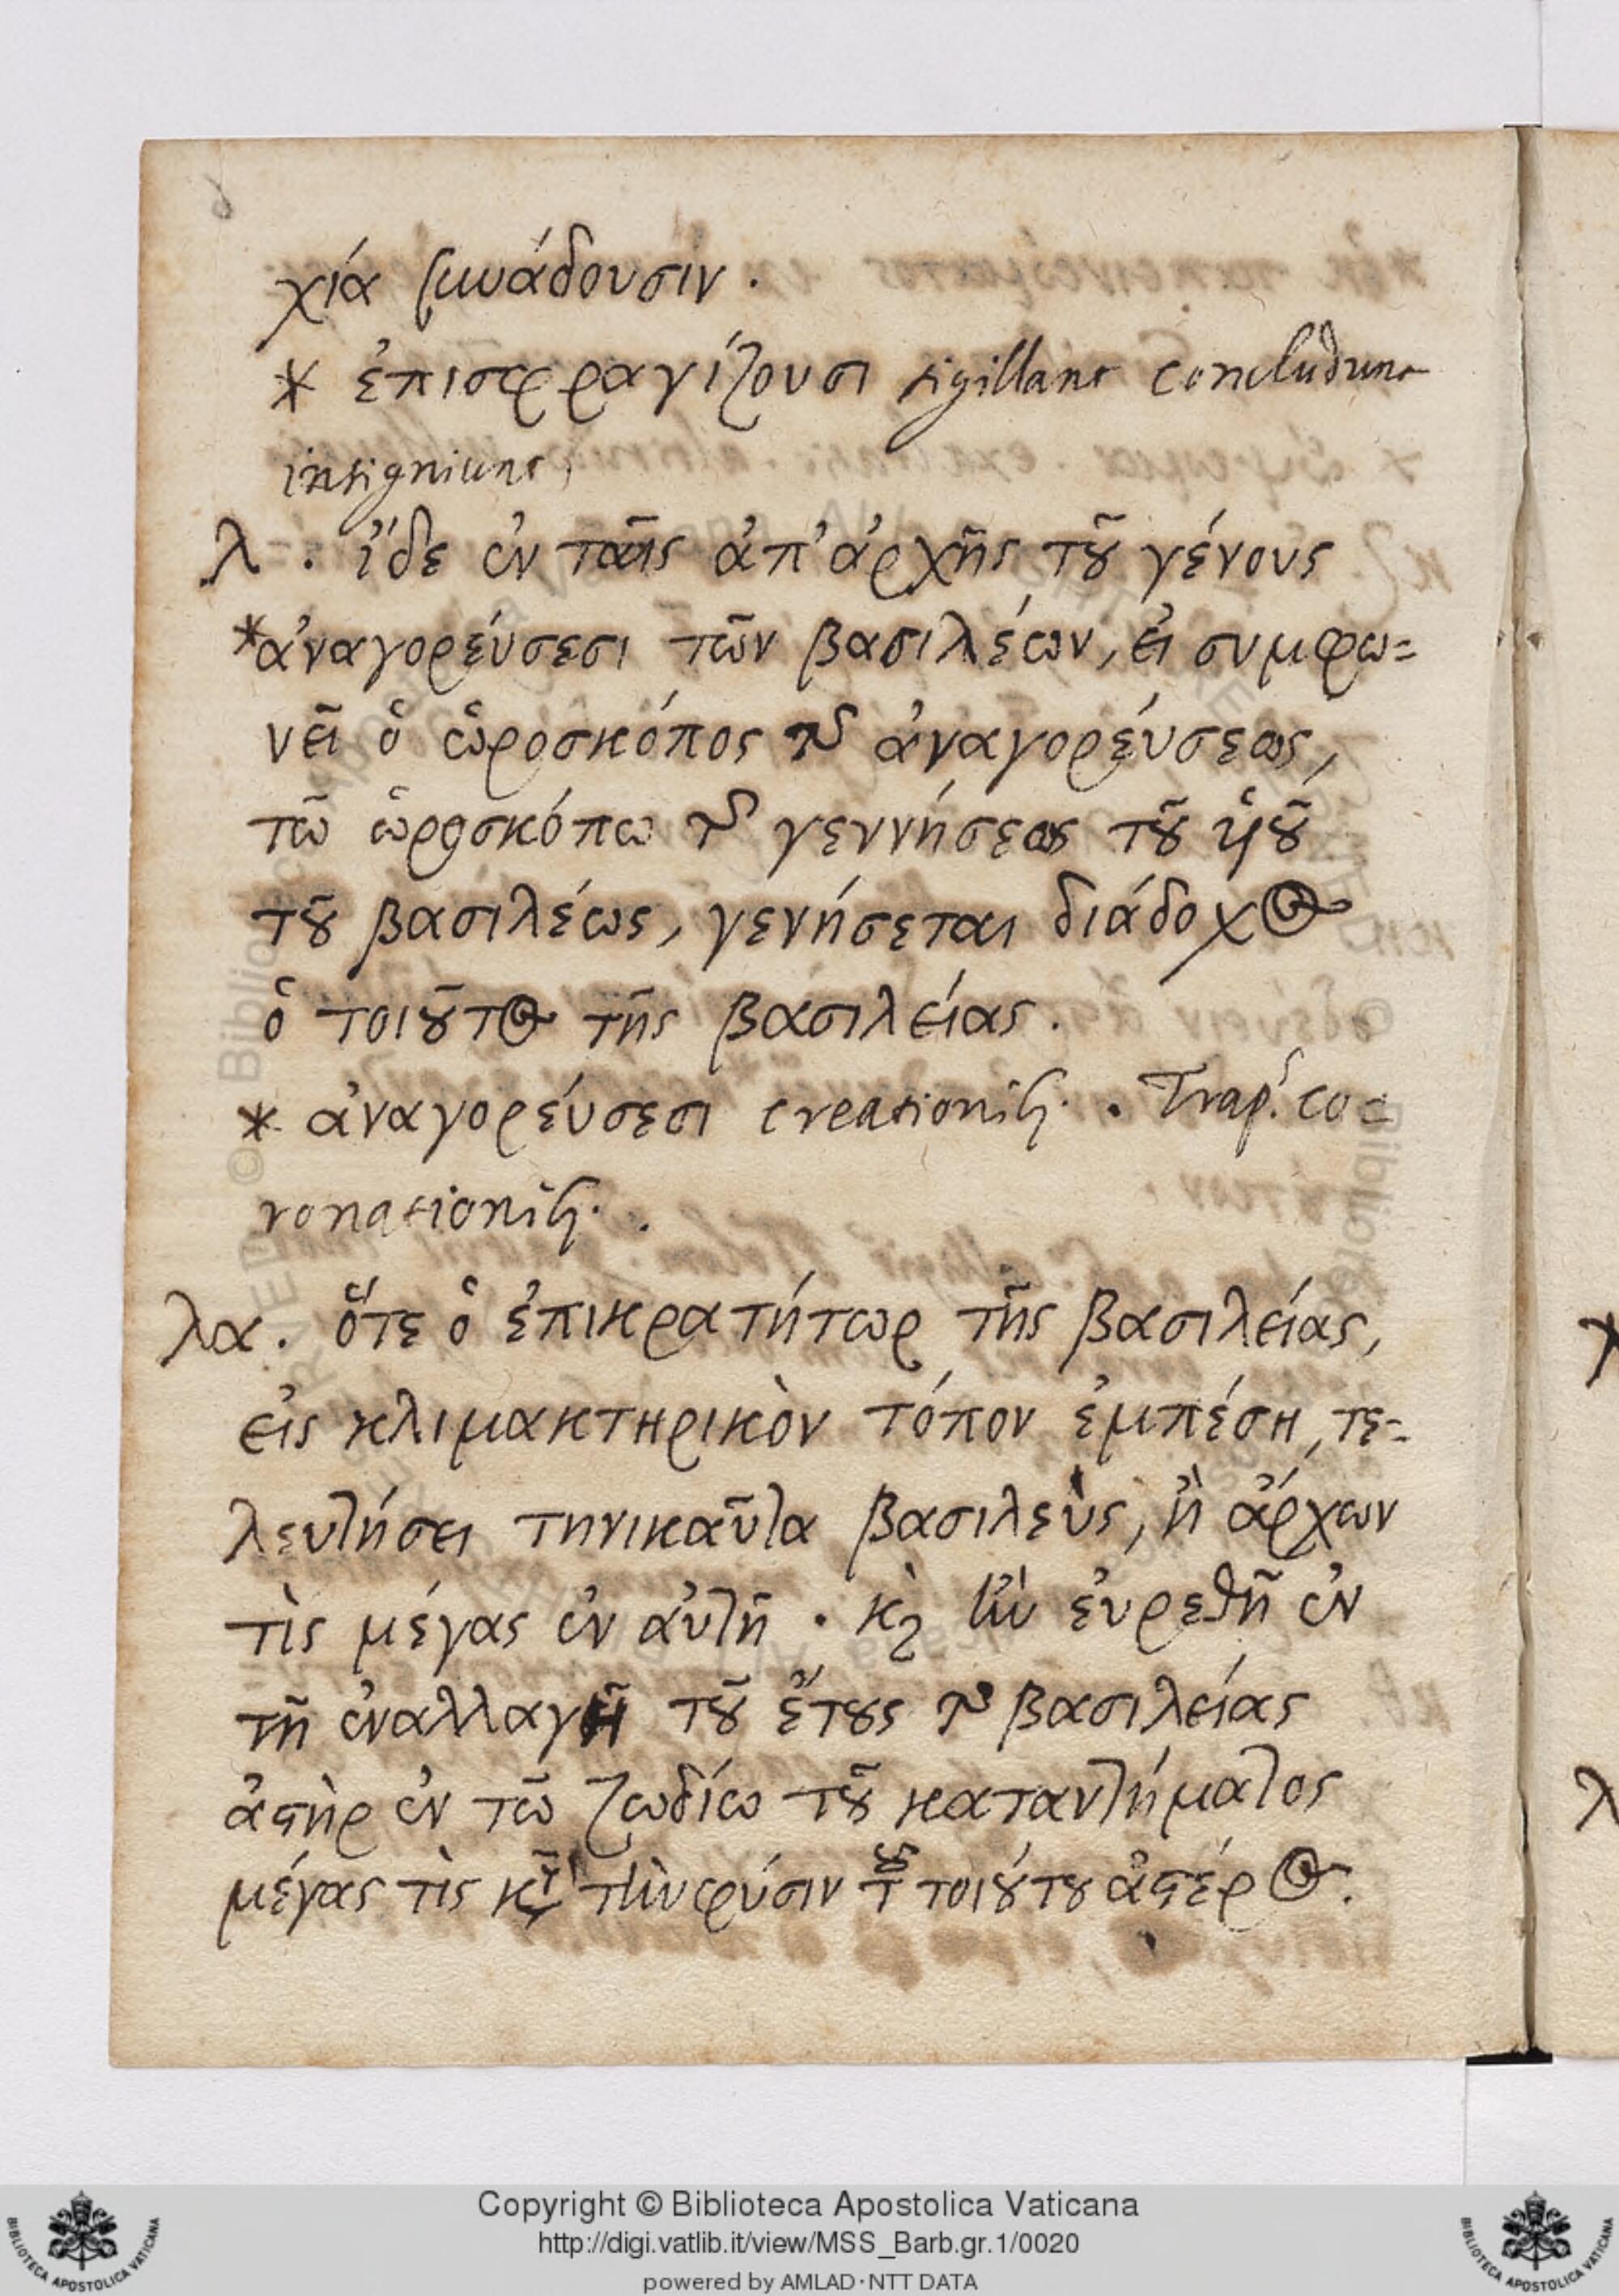 6
χία συνάδουσιν.
* ἐπισφραγίζουσι sigillant concludunt
insigniunt,
λ. ἴδε ἐν ταῖς ἀπ' ἀρχῆς τοῦ γένους
*ἀναγορεύσεσι τῶν βασιλέων, εἰ συμφω=
νεῖ ὁ ὡροσκόπος τῆς ἀναγορεύσεως,
τῶ ὡροσκόπω τῆς γεννήσεως τοῦ ὑιοῦ
τοῦ βασιλέως, γενήσεται διάδοχος
ὁ τοιοῦτος τῆς βασιλείας.
* ἀναγορεύσεσι creationib. . Trap. co=
ronationib. .
λα. ὅτε ὁ ἐπικρατήτωρ τῆς βασιλείας,
εἰς κλιμακτηρικὸν τόπον ἐμπέση, τε-
λευτήσει τηνικαῦτα βασιλεὺς, ἢ ἄρχων
τὶς μέγας ἐν ἀυτῆ . κὶ ἢν ἐυρεθῆ ἐν
τῆ ἐναλλαγῆ τοῦ ἔτους τῆς βασιλείας
ἀστὴρ ἐν τῶ ζωδίω τοῦ καταντήματος
μέγας τὶς κατὰ τὴν φύσιν τοῦ τοιούτου ἀστέρος.
Copyright © Biblioteca Apostolica Vaticana
http://digi.vatlib.it/view/MSS_Barb.gr.1/0020
powered by AMLAD·NTT DATA